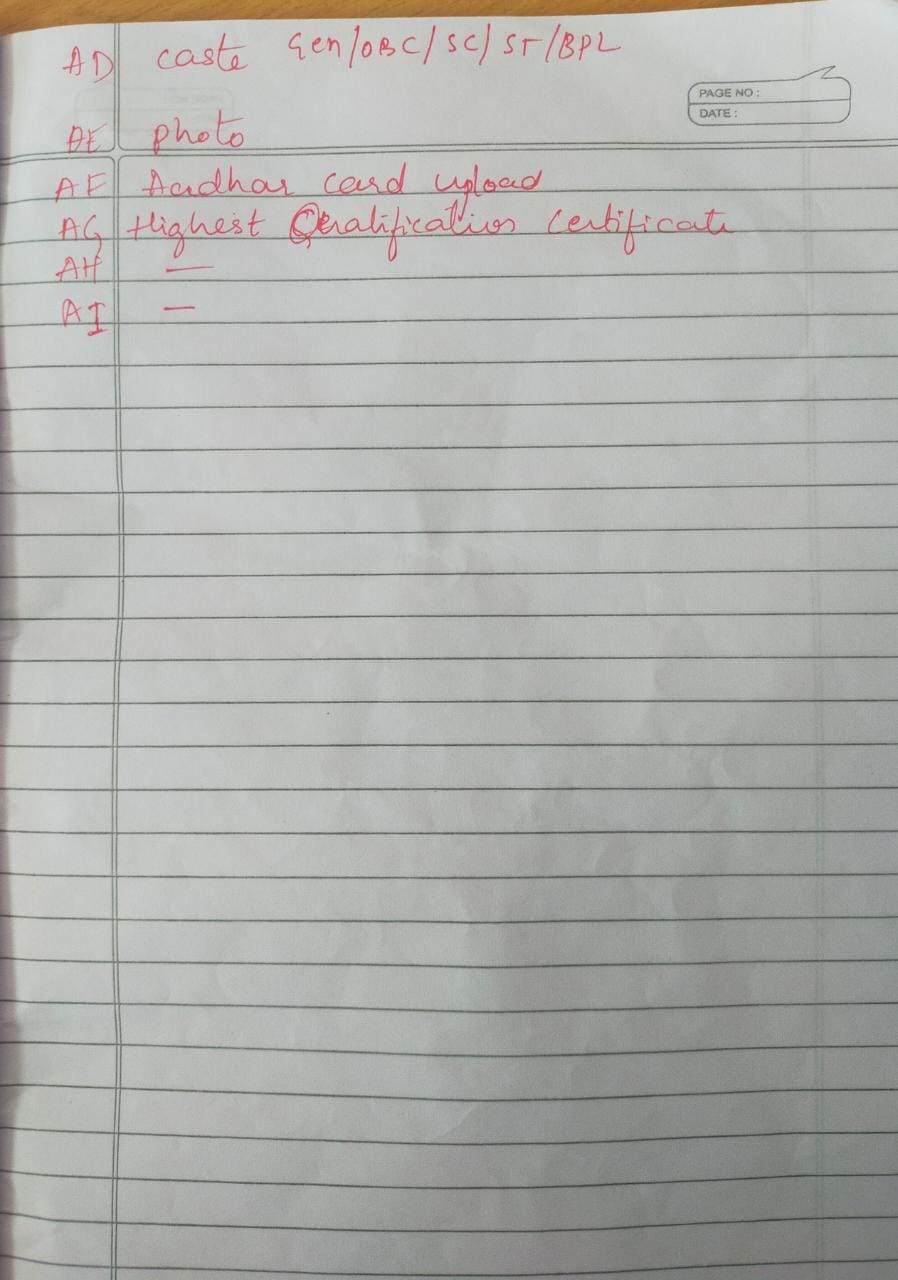 AD caste Gen/OBC/SC/ST/BPL
PAGE NO :
DATE :
AE photo
AF Aadhar card upload
AG Highest Qualification Certificate
AH —
AI —